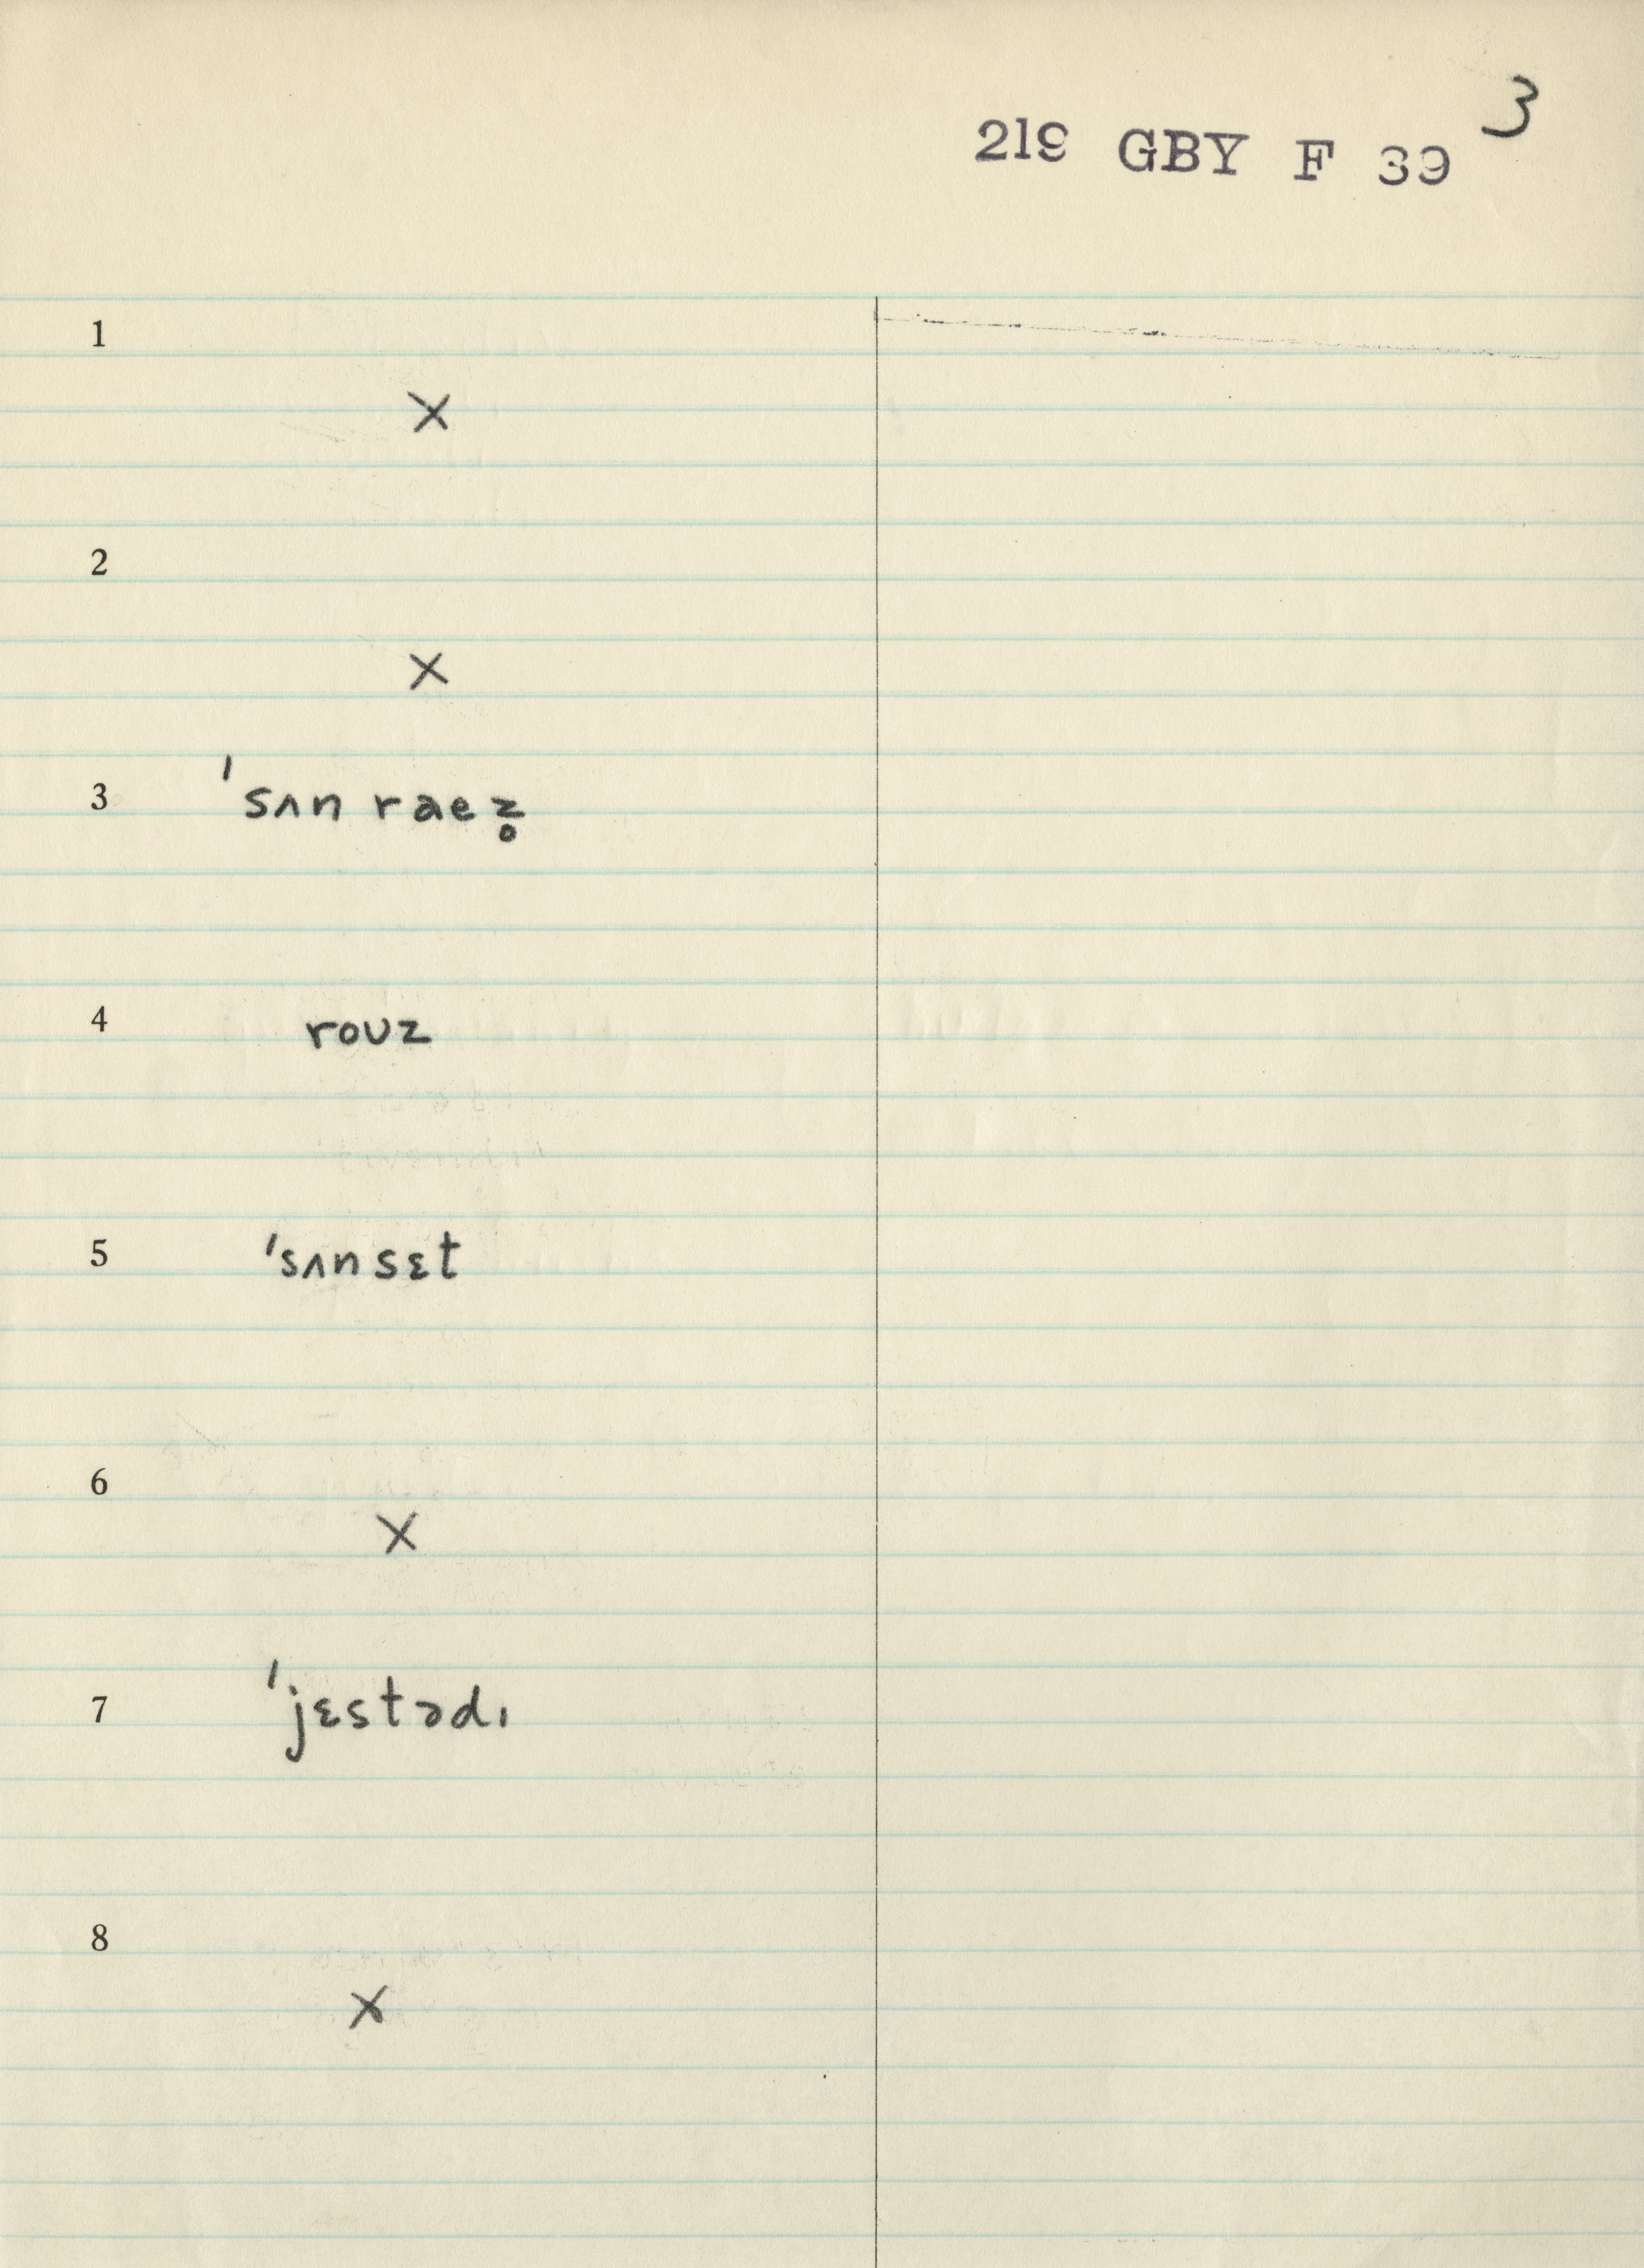 3
219 GBY F 39
1
X
2
X
3 ˈsʌn raez̥
4 roʊz
5 ˈsʌnsɛt
6
X
7 ˈjɛstədɪ
8
X